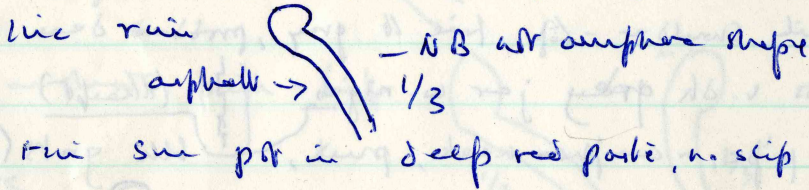 rim — NB not amphora shape
asphalt → 1/3
rim same pot in deep red paste, no slip